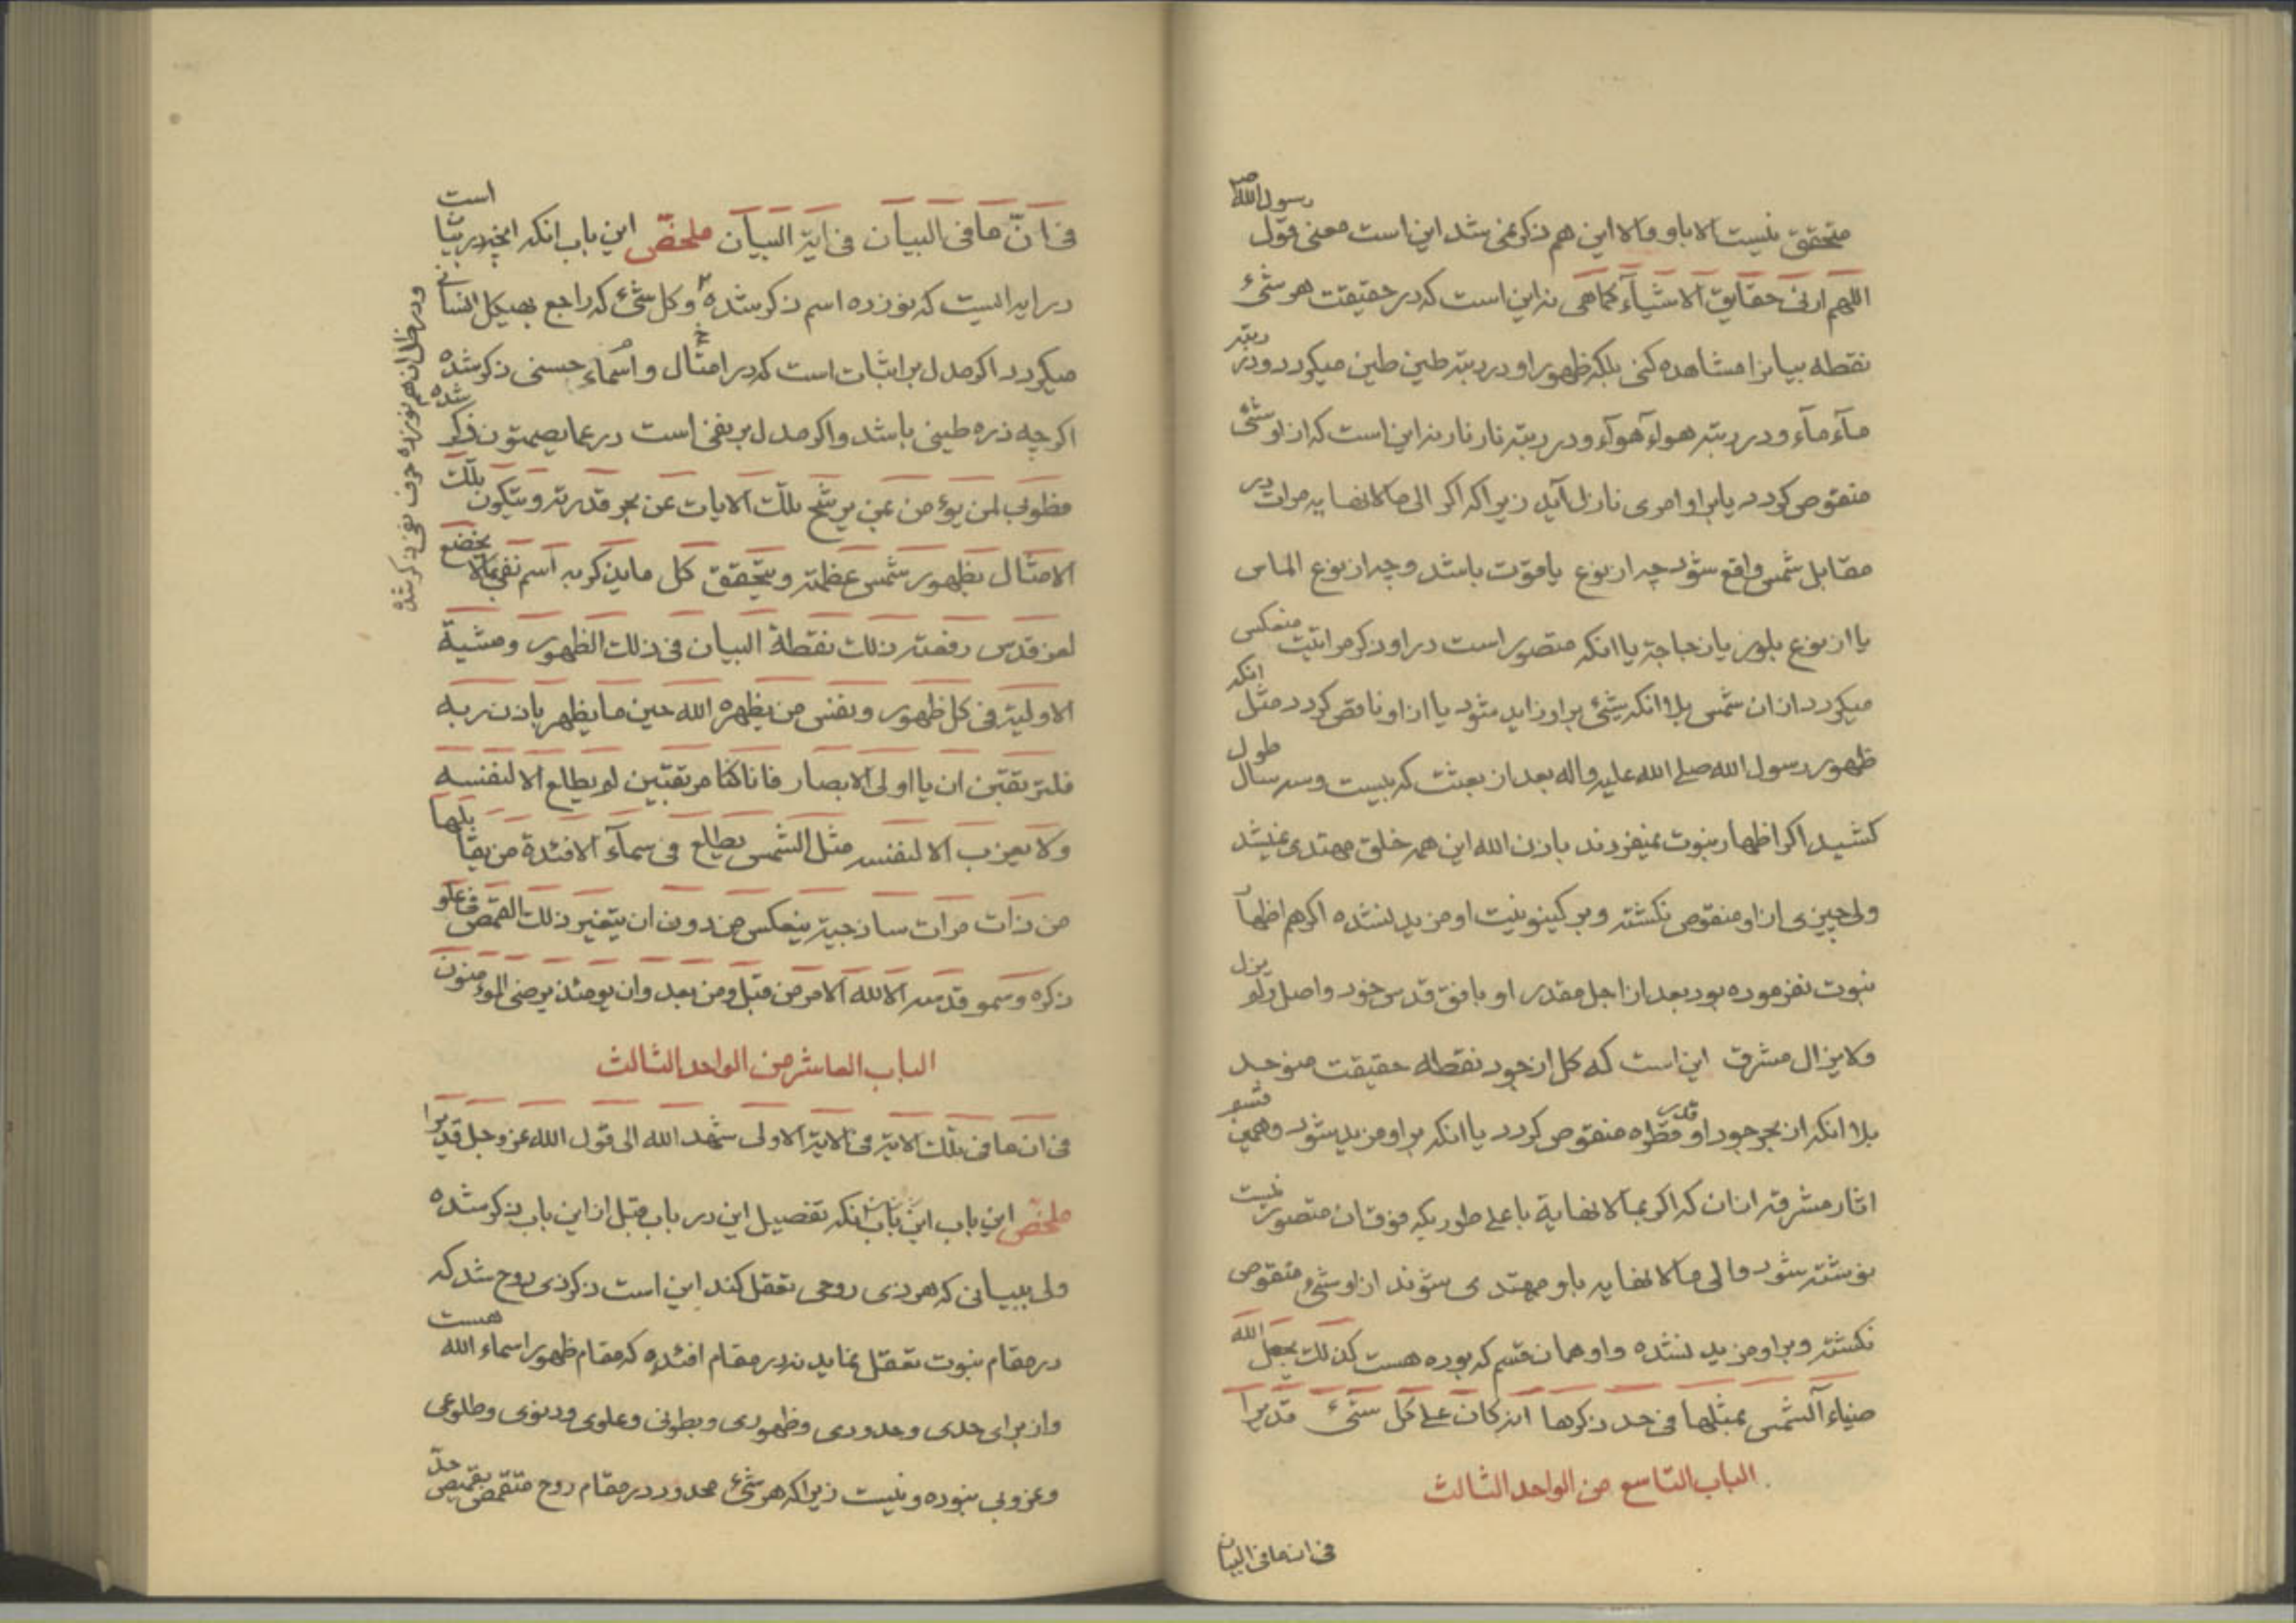 متحقق نیست الا باو والا این هم ذکر نمی شد این است معنی قول رسول الله ص
اللهم ارنی حقایق الاشیآء کماهی نه این است که در حقیقت هر شیء
نقطه بیانرا مشاهده کنی بلکه ظهور او در رتبه طین طین میکردد ودر رتبه
مآء مآء ودر رتبه هوآء هوآء ودر رتبه نار نار نه این است که از او شئ
منقوص کردد یا بر او امری نازل آید زیرا که اکر الی مالانهایه مرات در
مقابل شمس واقع شود چه از نوع یاقوت باشد وچه از نوع الماس
یا از نوع بلور یا زجاجة یا انکه متصور است در او ذکر مراتیت منعکس
میکردد از ان شمس بلا انکه شئ بر او زاید شود یا از او ناقص کردد مثل انکه
ظهور رسول الله صلے الله علیه واله بعد از بعثت که بیست وسه سال طول
کشید اکر اظهار نبوت نمیفرمودند باذن الله این همه خلق مهتدی نمیشد
ولی چیزی از او منقوص نکشته وبر کینونیت او مزید نشده اکر هم اظهار
نبوت نفرموده بود بعد از اجل مقدر او بافق قدس خود واصل ولم یزل
ولایزال مشرق این است که کل از جود نقطه حقیقت متوجد
بلا انکه از بحر جود او قدر قطره منقوص کردد یا انکه بر او مزید شود وهمین قسم
اثار مشرقه از ان که اکر بمالانهایة باعلے طوریکه فوق ان متصور نیست
نوشته شود والی مالانهایه باو مهتدی شوند از او شئ منقوص
نکشته وبر او مزید نشده واو همان قسم که بوده هست کذلك یجعل الله
ضیاء الشمس بمثلها فی حد ذکرها انه کان علے کل شئء قدیرا
الباب التاسع من الواحد الثالث
فی ان ما فی البیان
فی انّ ما فی البیان فی ایة البیان ملخص این باب انکه انچه در بیان است
در ایه ایست که نوزده اسم ذکر شده وکل شئ که راجع بهیکل انسانی
میکردد اکر مدل بر اثبات است که در امثال واسماء حسنی ذکر شده
اکر چه ذره طینی باشد واکر مدل بر نفی است در عما یصمتون ذکر شده
فطوبی لمن یؤمن بمن یرشح تلك الایات عن بحر قدرته ویتکون تلك
الامثال بظهور شمس عظمته ویتحقق کل ما یذکر به اسم نفی بما لا یخضع
لعز قدس رفعته ذلك نقطة البیان فی ذلك الظهور ومشیة
الاولیة فی کل ظهور ونفس من یظهره الله حین ما یظهر باذن ربه
فلترتقبن ان یا اولی الابصار فانا کنا مرتقبین لم یطلع الا لنفسه
ولا یعزب الا لنفسه مثل الشمس یطلع فی سماء الافئدة من یقابلها
من ذات مرات ساذجیة ینعکس من دون ان یتغیر ذلك القمص فی علو
ذکره وسمو قدسه الا لله الامر من قبل ومن بعد وان یومئذ یرضی المؤمنون
ودر ظل ان هم نوزده حرف نفی ذکر شده
الباب العاشر من الواحد الثالث
فی ان ما فی تلك الایة فی الایة الاولی شهد الله الی قول الله عز وجل قدیرا
ملخص این باب این باب انکه تفصیل این در باب قبل از این باب ذکر شده
ولی ببیانی که هر ذی روحی تعقل کند این است ذکر ذی روح شد که
در مقام نبوت تعقل نماید نه در مقام افئده که مقام ظهور اسماء الله هست
واز برای حدی وحدودی وظهوری وبطونی وعلوی ودنوی وطلوعی
وغروبی نبوده ونیست زیرا که هر شئ محدود در مقام روح متقمص بقمیص حد